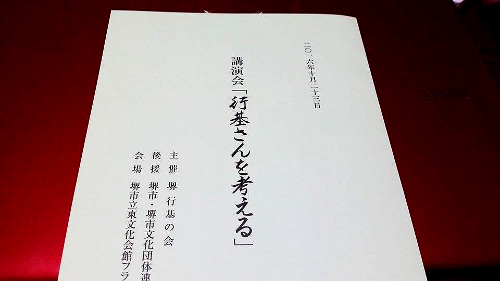 二〇一六年十月二十三日
講演会「行基さんを考える」
主催 堺 行基の会
後援 堺市・堺市文化団体連
会場 堺市立東文化会館フラ